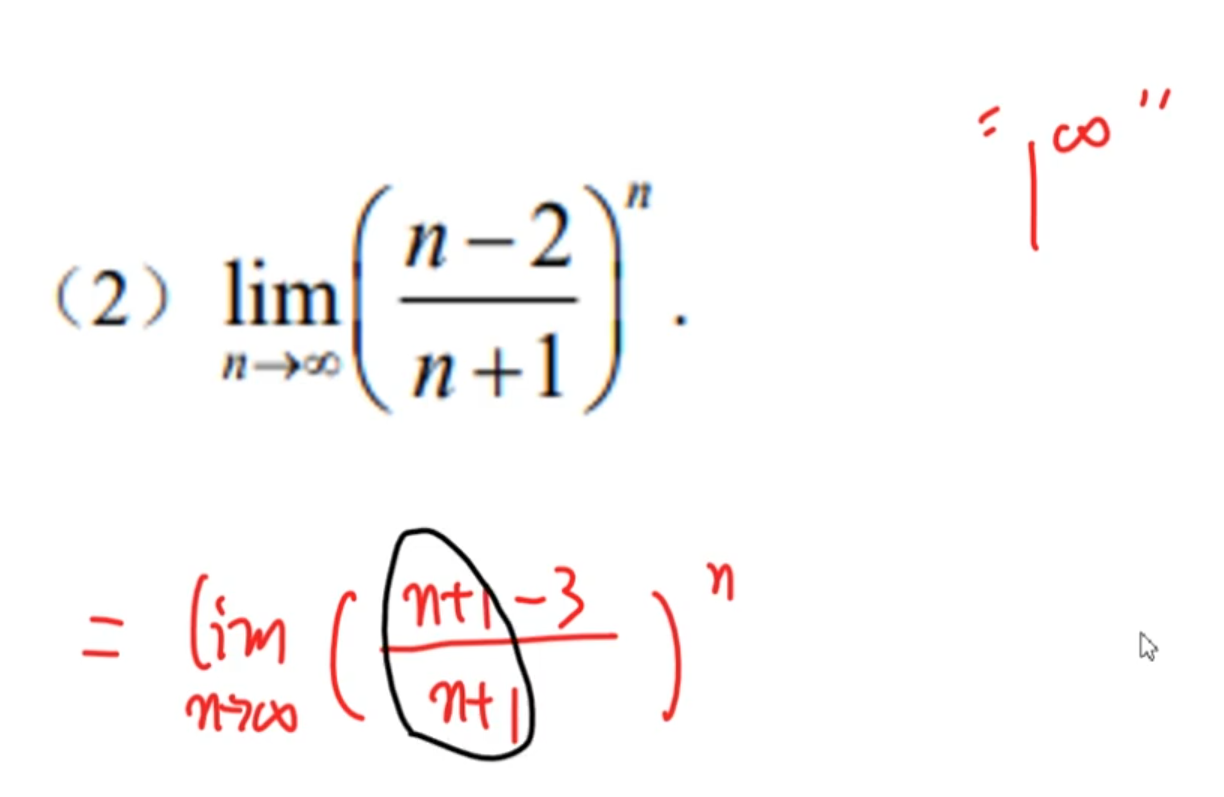 " 1^∞ "
（2） lim_{n→∞} ( (n−2)/(n+1) )^n .
= lim_{n→∞} ( (n+1−3)/(n+1) )^n